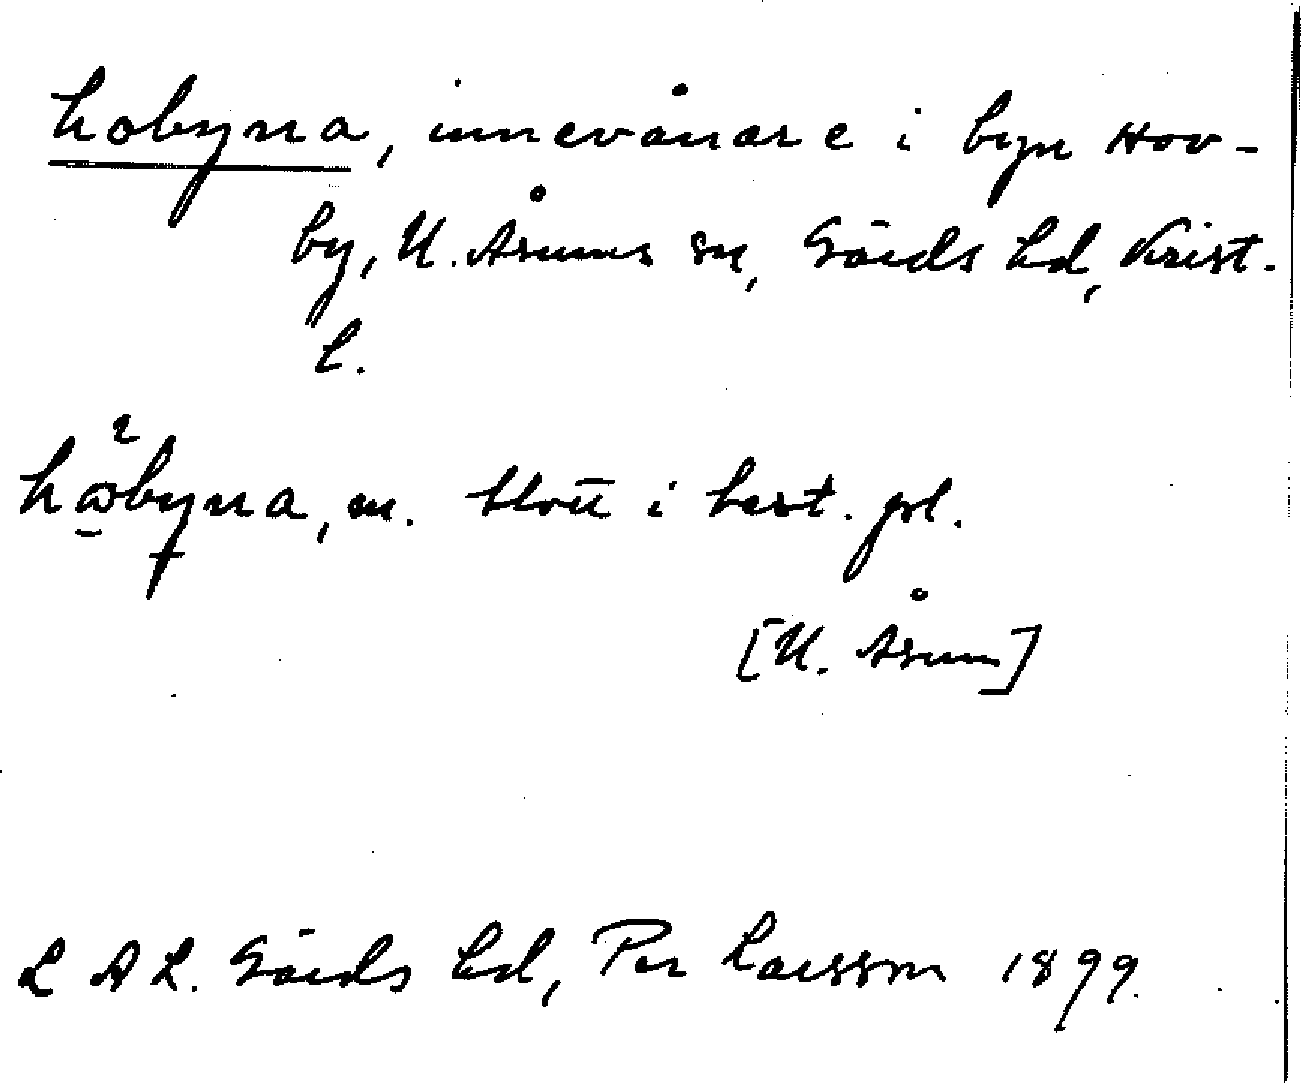 hobyna, innevånare i byn Hov-
by, N. Åsums sn, Gärds hd, Krist.
l.
hꭃbyna, m. blott i best. pl.
[N. Åsum]
LAL. Gärds hd, Per Larsson 1899.